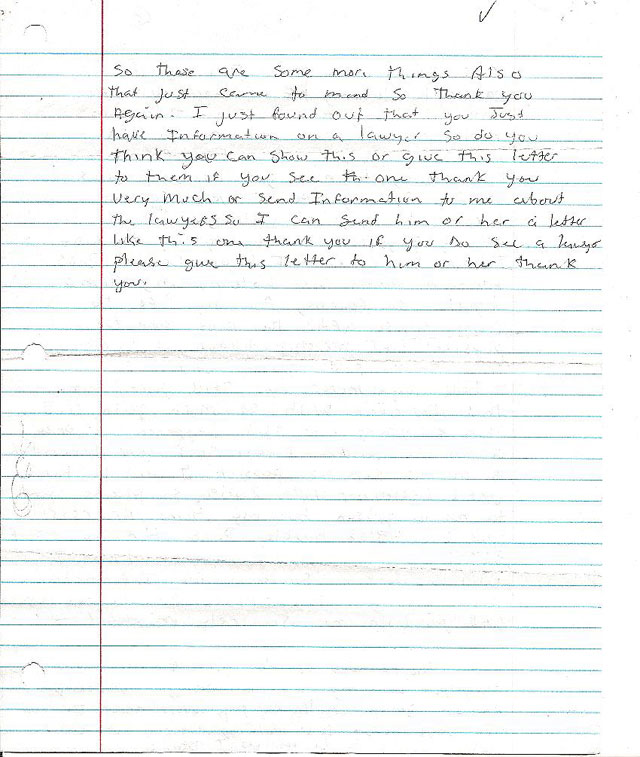 So these are some more things Also
that just came to mind so thank you
Again. I just found out that you Just
have Information on a lawyer so do you
think you can show this or give this letter
to them if you see this one thank you
very much or send Information to me about
the lawyers so I can send him or her a letter
like this one thank you if you do see a lawyer
please give this letter to him or her thank
you.